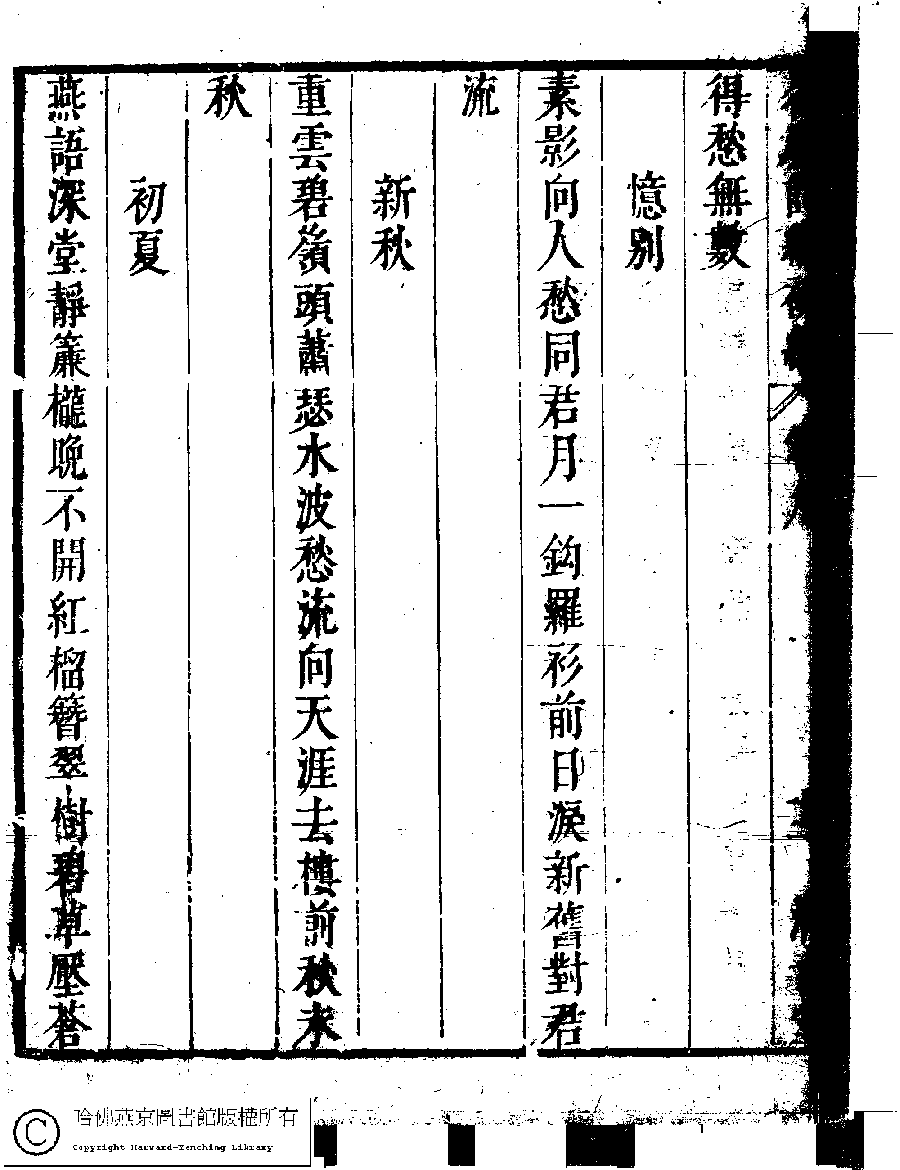 得愁無數
憶別
素影向人愁同君月一鈎羅衫前日淚新舊對君
流
新秋
重雲碧嶺頭蕭瑟水波愁流向天涯去樓前秋未
秋
初夏
燕語深堂靜簾櫳晚不開紅榴簪翠樹碧草壓蒼
哈佛燕京圖書館版權所有
Copyright Harvard-Yenching Library